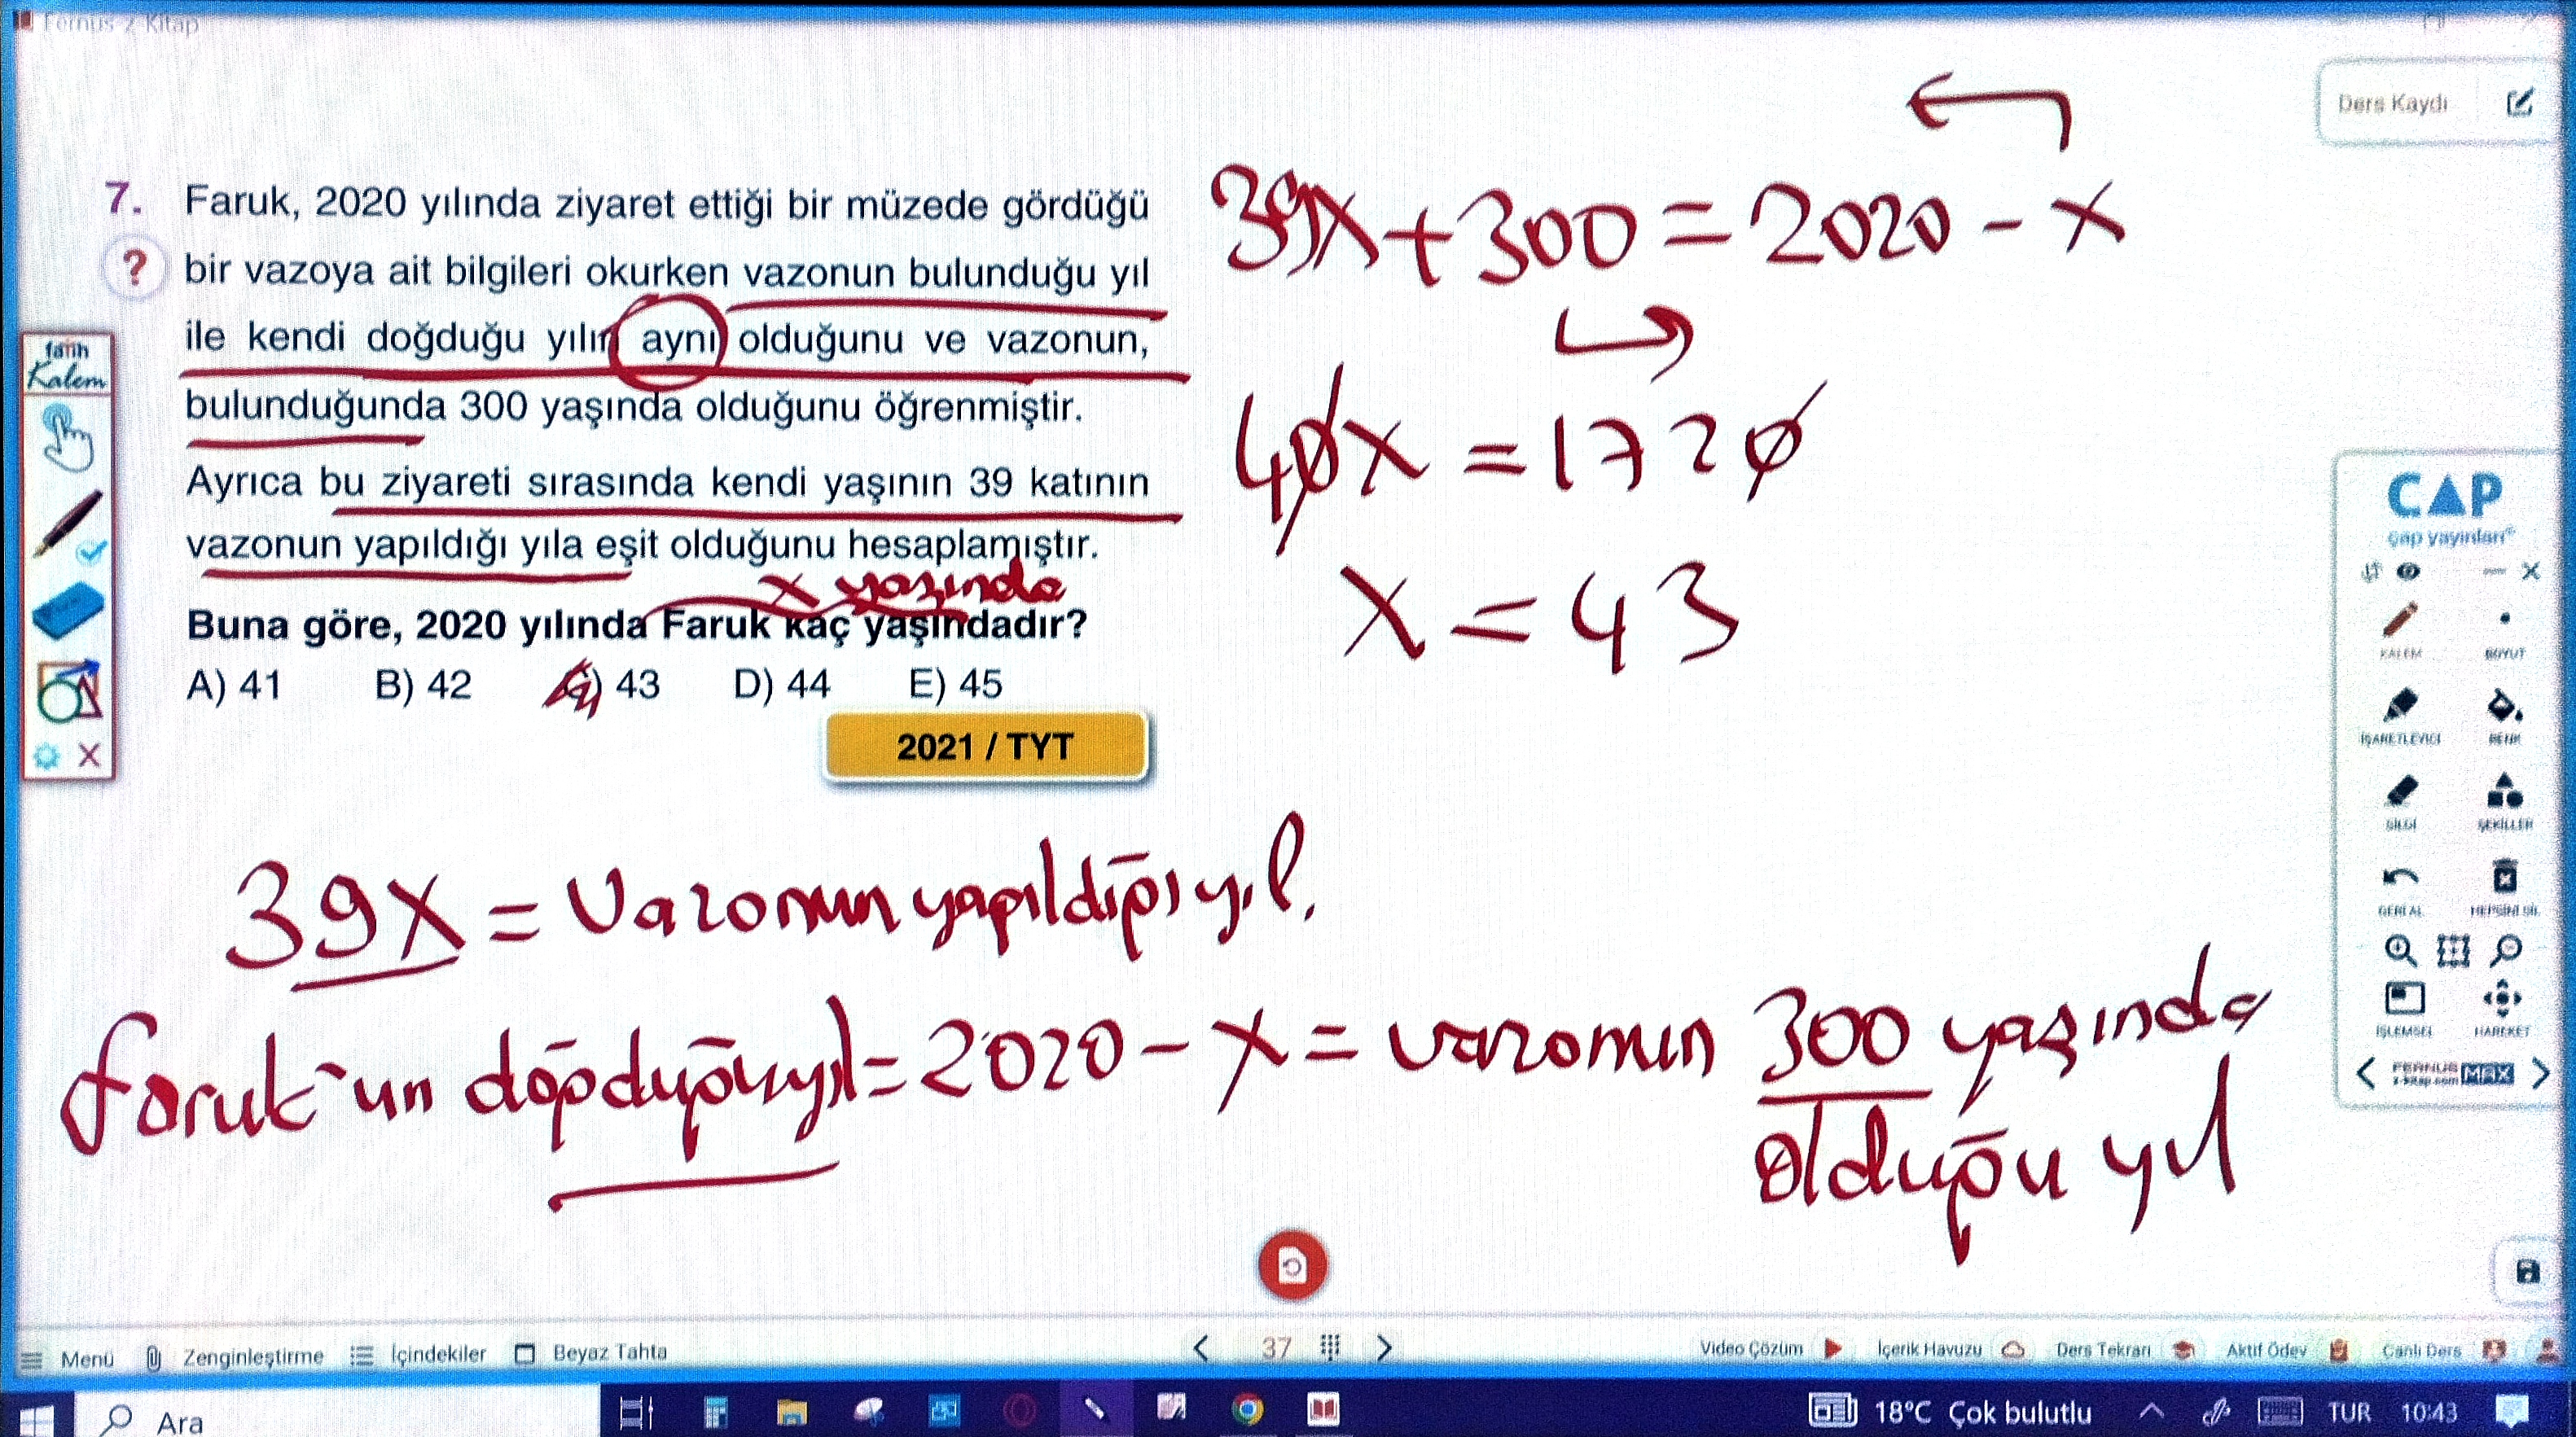 Fernus Z Kitap
Ders Kaydı
7. Faruk, 2020 yılında ziyaret ettiği bir müzede gördüğü
? bir vazoya ait bilgileri okurken vazonun bulunduğu yıl
ile kendi doğduğu yılın aynı olduğunu ve vazonun,
bulunduğunda 300 yaşında olduğunu öğrenmiştir.
Ayrıca bu ziyareti sırasında kendi yaşının 39 katının
vazonun yapıldığı yıla eşit olduğunu hesaplamıştır.
x yaşında
Buna göre, 2020 yılında Faruk kaç yaşındadır?
A) 41 B) 42 C) 43 D) 44 E) 45
2021 / TYT
39x+300=2020-x
40x=1720
x=43
39x=Vazonun yapıldığı yıl.
Faruk'un doğduğu yıl=2020-x=vazonun 300 yaşında
olduğu yıl
fatih
Kalem
ÇAP
çap yayınları
KALEM BOYUT
İŞARETLEYİCİ RENK
SİLGİ ŞEKİLLER
GERİ AL HEPSİNİ SİL
İŞLEMSEL HAREKET
FERNUS MAX
z-kitap.com
Menü Zenginleştirme İçindekiler Beyaz Tahta 37 Video Çözüm İçerik Havuzu Ders Tekrarı Aktif Ödev Canlı Ders
Ara 18°C Çok bulutlu TUR 10:43